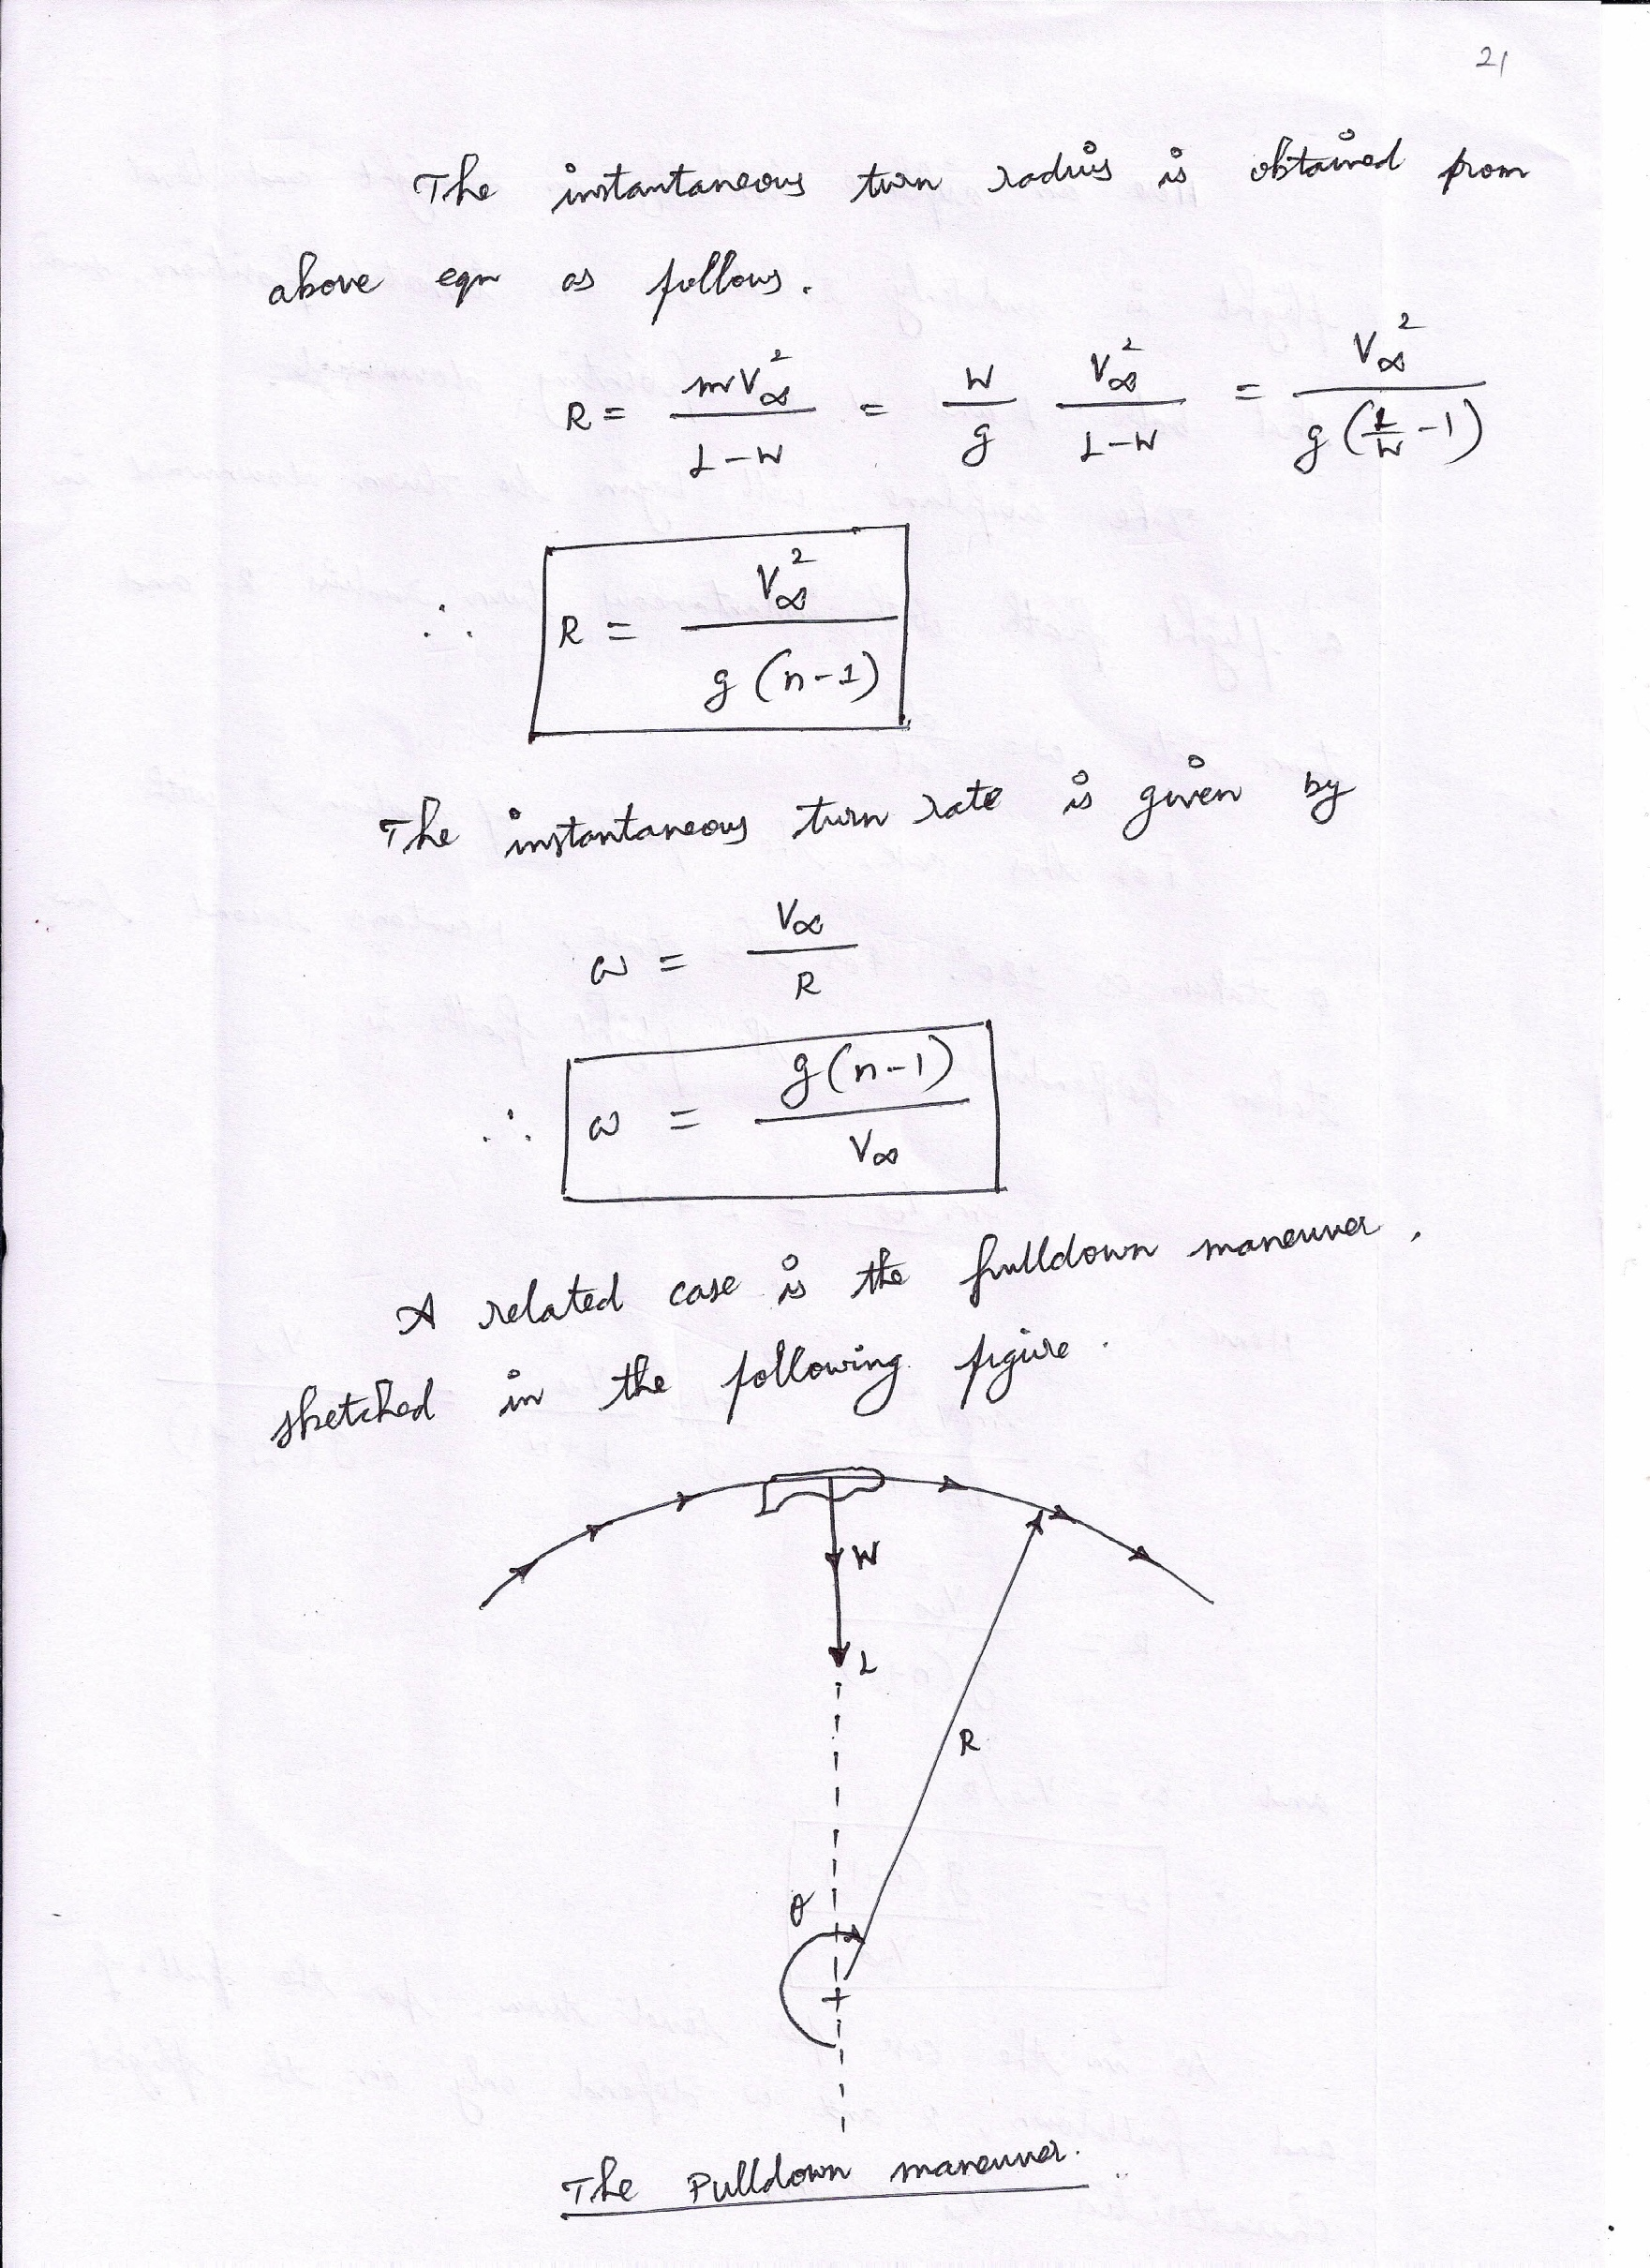 21
The instantaneous turn radius is obtained from
above eqn as follows.
R = mV∞² / L-W = W/g V∞² / L-W = V∞² / g(L/W -1)
∴ R = V∞² / g(n-1)
The instantaneous turn rate is given by
ω = V∞ / R
∴ ω = g(n-1) / V∞
A related case is the pulldown maneuver,
sketched in the following figure.
W
L
R
θ
The Pulldown maneuver.